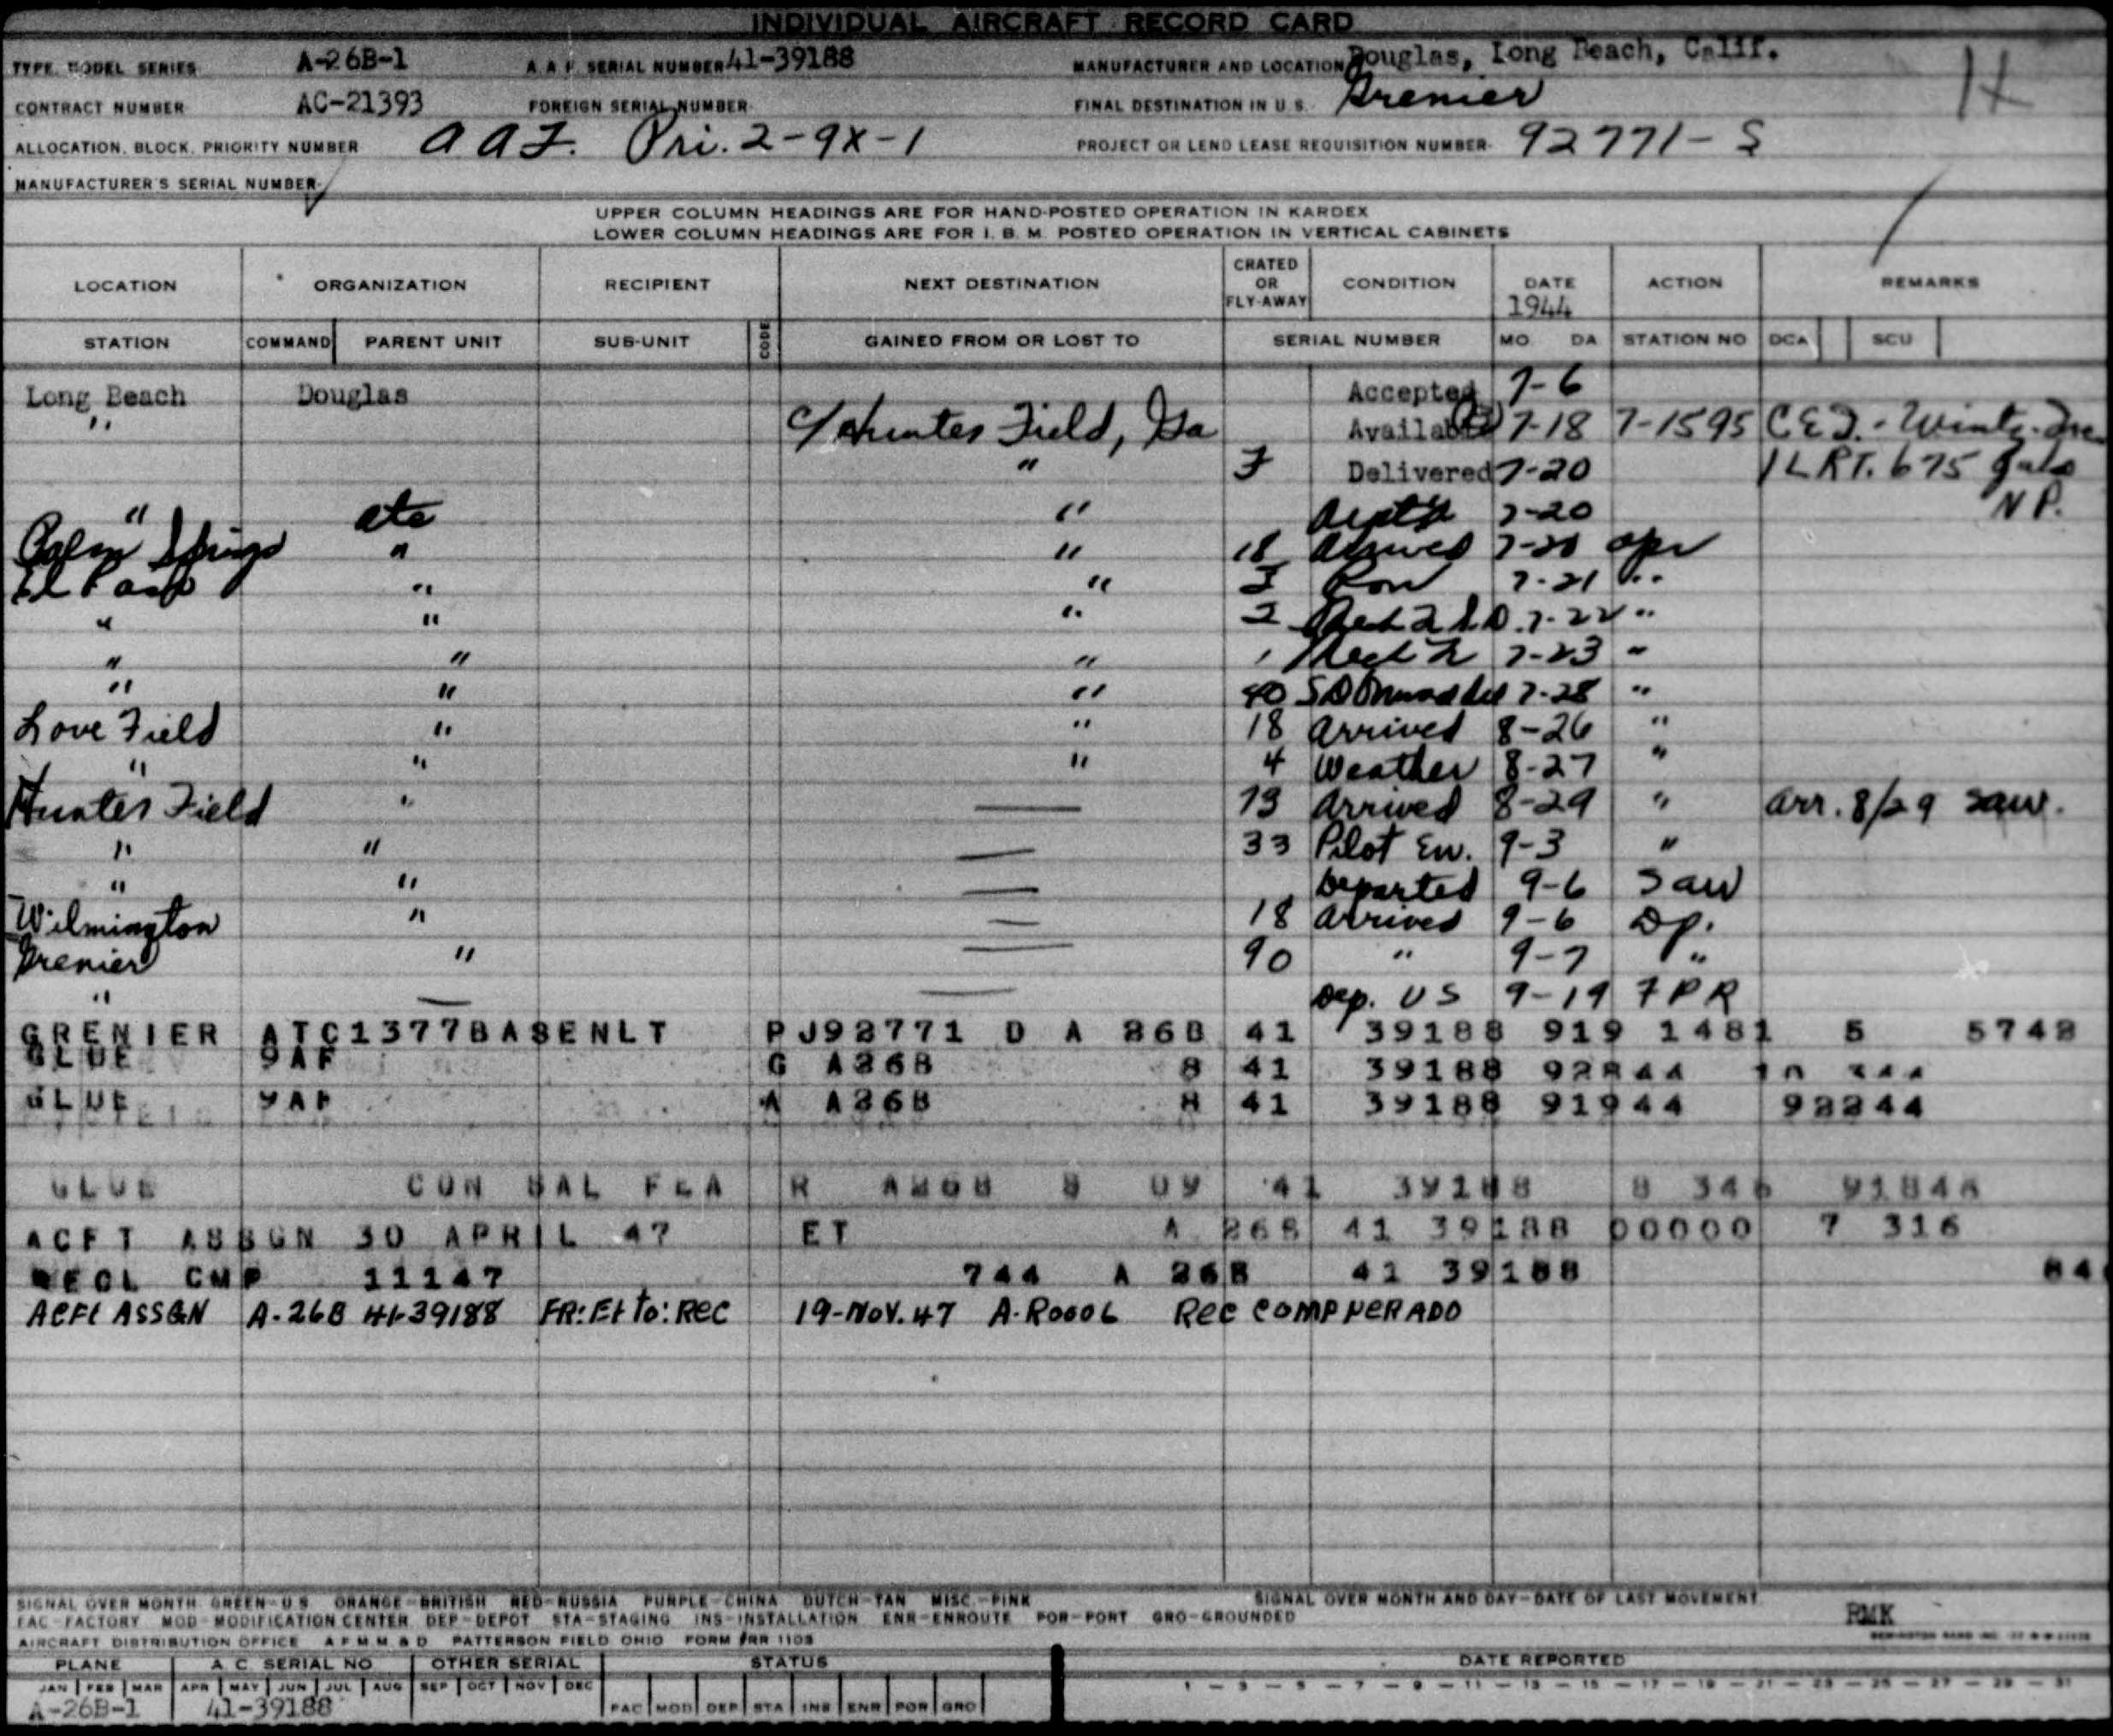 INDIVIDUAL AIRCRAFT RECORD CARD
TYPE, MODEL SERIES A-26B-1 A.A.F. SERIAL NUMBER 41-39188 MANUFACTURER AND LOCATION Douglas, Long Beach, Calif.
CONTRACT NUMBER AC-21393 FOREIGN SERIAL NUMBER FINAL DESTINATION IN U.S. Grenier
ALLOCATION, BLOCK, PRIORITY NUMBER AAF. Pri. 2-9X-1 PROJECT OR LEND LEASE REQUISITION NUMBER 92771-S
MANUFACTURER'S SERIAL NUMBER
UPPER COLUMN HEADINGS ARE FOR HAND-POSTED OPERATION IN KARDEX
LOWER COLUMN HEADINGS ARE FOR I. B. M. POSTED OPERATION IN VERTICAL CABINETS
LOCATION ORGANIZATION RECIPIENT NEXT DESTINATION CRATED OR FLY-AWAY CONDITION DATE 1944 ACTION REMARKS
STATION COMMAND PARENT UNIT SUB-UNIT CODE GAINED FROM OR LOST TO SERIAL NUMBER MO DA STATION NO DCA SCU
Long Beach Douglas Accepted 7-6
" Hunter Field, Ga Available 7-18 7-1595
" F Delivered 7-20 675 gals
" atc " 7-20 N.P.
Palm Springs " " 18 Arrived 7-20 opr
El Paso " " Ron 7-21 "
" " " 7-22 "
" " " 1 7-23 "
" " " 40 7-28 "
Love Field " " 18 Arrived 8-26 "
" " " 4 Weather 8-27 "
Hunter Field " — 13 Arrived 8-29 " arr. 8/29 saw.
" " — 33 Pilot En. 9-3 "
" " — Departed 9-6 saw
Wilmington " — 18 Arrived 9-6 Op.
Grenier " — 90 " 9-7 "
" — — Dep. US 9-19 FPR
GRENIER ATC1377BASENLT PJ92771 D A 26B 41 39188 919 1481 5 5742
GLUE 9AF G A26B 8 41 39188
GLUE 9AF A A26B 41 39188 91944 92244
GLUE CON SAL FEA R A26B 09 41 39188
ACFT ASSGN 30 APRIL 47 ET A 26B 41 39188 00000 7 316
RECL CMP 11147 744 A 26B 41 39188
ACFT ASSGN A-26B 41-39188 FR: Et to: REC 19-NOV. 47 A-R0006 REC COMP
SIGNAL OVER MONTH GREEN-U S ORANGE-BRITISH RED-RUSSIA PURPLE-CHINA DUTCH-TAN MISC.-PINK SIGNAL OVER MONTH AND DAY-DATE OF LAST MOVEMENT
FAC-FACTORY MOD-MODIFICATION CENTER DEP-DEPOT STA-STAGING INS-INSTALLATION ENR-ENROUTE POR-PORT GRO-GROUNDED RMK
AIRCRAFT DISTRIBUTION OFFICE A F M M & D PATTERSON FIELD OHIO FORM
PLANE A C SERIAL NO OTHER SERIAL STATUS DATE REPORTED
JAN FEB MAR APR MAY JUN JUL AUG SEP OCT NOV DEC 1 - 3 - 5 - 7 - 9 - 11 - 13 - 15 - 17 - 19 - 21 - 23 - 25 - 27 - 29 - 31
A-26B-1 41-39188 FAC MOD DEP STA INS ENR POR GRO